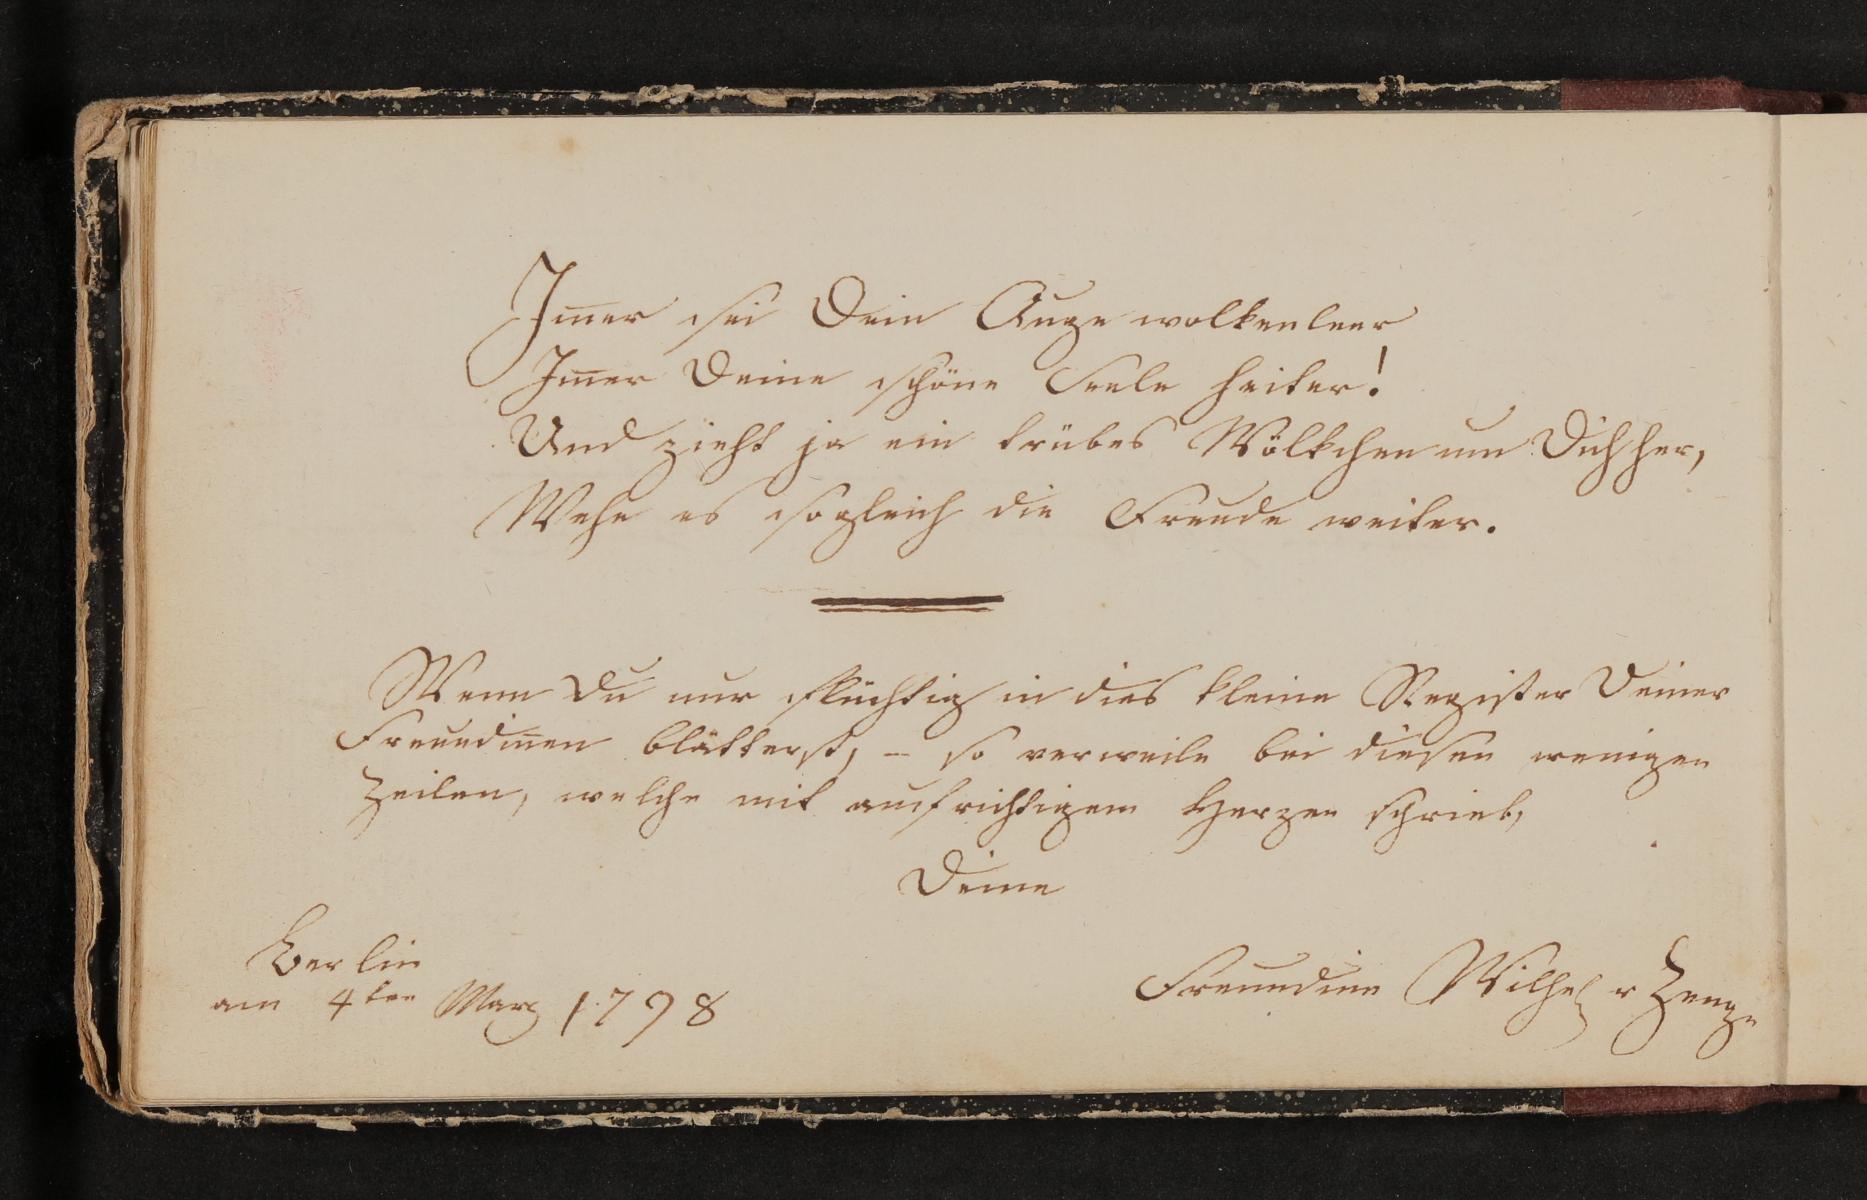 Im̅er sei Dein Auge wolkenleer
Im̅er Deine schöne Seele heiter!
Und zieht ja ein trübes Wölkchen um Dich her,
Wehe es sogleich die Freude weiter.
Wenn Du nur flüchtig in dies kleine Register Deiner
Freundin̅en blätterst, – so verweile bei diesen wenigen
Zeilen, welche mit aufrichtigem Herzen schrieb,
Deine
Berlin
am 4ten Marz 1798
Freundinn Wilhel v Zenge